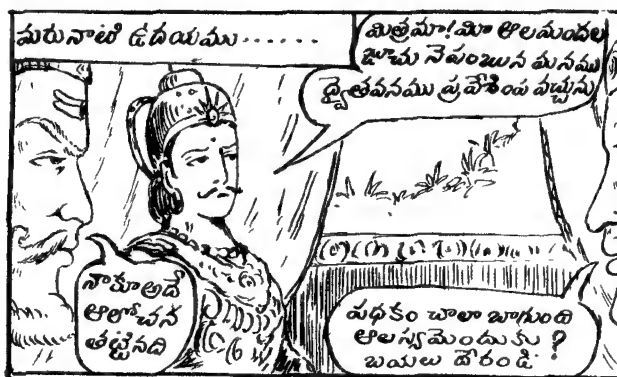 మరునాటి ఉదయము......
మిత్రమా! మా ఆలమందల
జూచు నెపంబున మనము
ద్వైతవనము ప్రవేశింప వచ్చును
నాకూ అదే
ఆలోచన
తట్టినది
పథకం చాలా బాగుంది
ఆలస్యమెందుకు ?
బయలు దేరండి